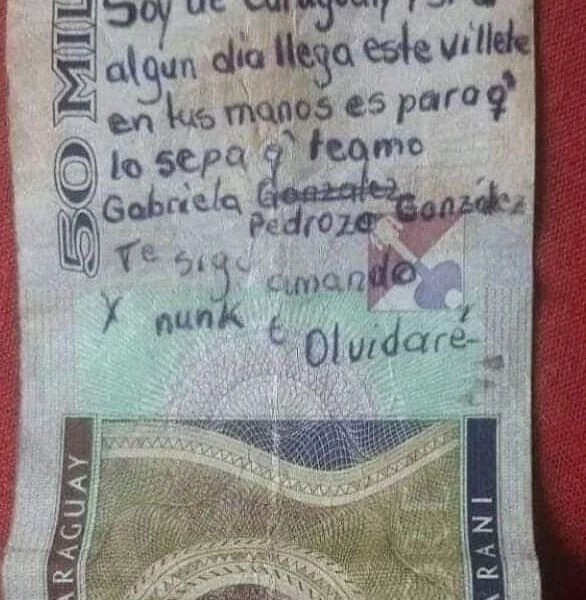 Soy de
algun dia llega este villete
en tus manos es para q'
lo sepa q' teamo
Gabriela Gonzalez
Pedrozo González
Te sigo amando
y nunk t Olvidaré
50 MIL
ARAGUAY
ARANI